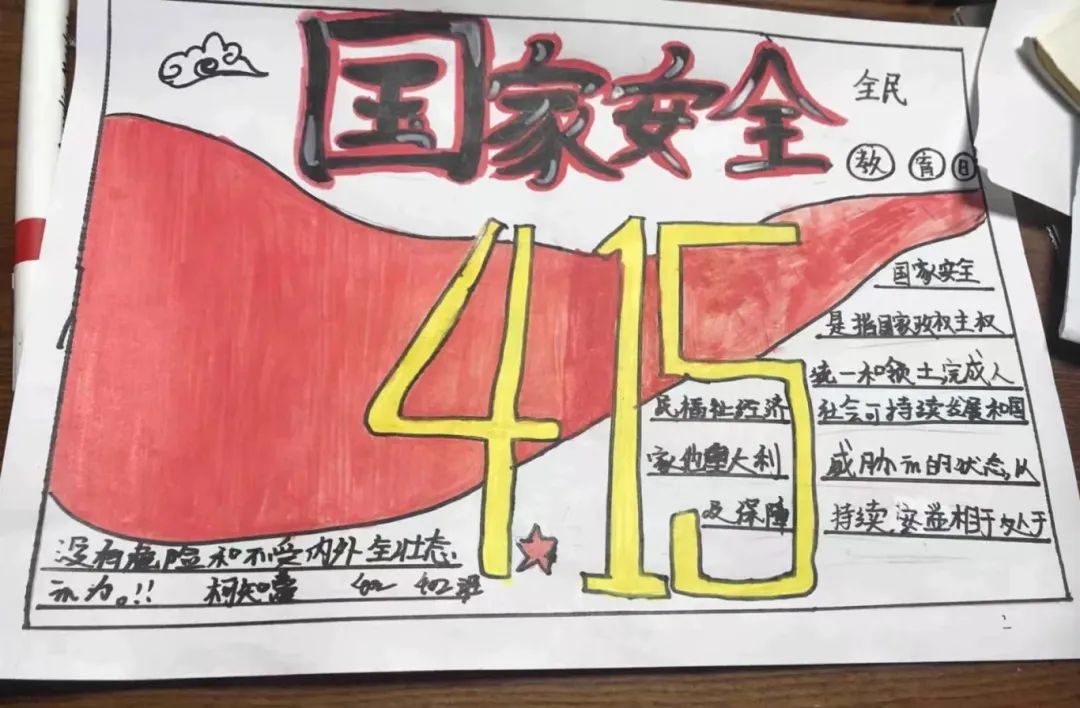 国家安全
全民
教育日
4.15
国家安全
是指国家政权主权
统一和领土完成人
民福祉经济 社会可持续发展和国
家他重大利 威胁示的状态,从
及保障 持续,安益相于处于
没有危险和不受内外全壮态.
示为。!! 柯知 402 402班